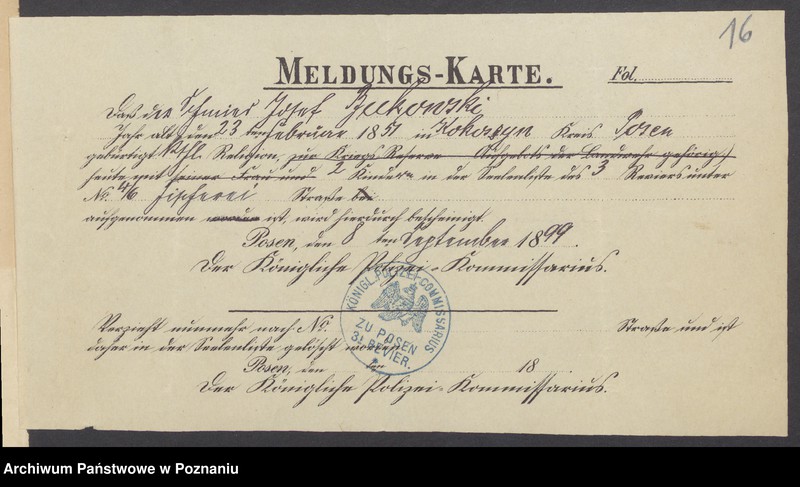 16
MELDUNGS-KARTE.
Fol.
Daß der Schmied Josef Bukowski
Jahr alt, den 23 ten Februar 1851 in Kreis Posen
gebürtigt kath. Religion, zur Kriegs-Reserve Aufgebots der Landwehr gehörig,
heute mit seiner Frau und 2 Kindern in der Seelenliste des 3 Reviers unter
No. 4/6 Fischerei Straße bei
aufgenommen worden ist, wird hierdurch bescheinigt.
Posen, den 8 ten September 1899.
Der Königliche Polizei-Kommissarius.
KÖNIGL. POLIZEI-COMMISSARIUS
ZU POSEN
3. REVIER.
Verzieht nunmehr nach No. Straße und ist
daher in der Seelenliste gelöscht worden.
Posen, den ten 18
Der Königliche Polizei-Kommissarius.
Archiwum Państwowe w Poznaniu